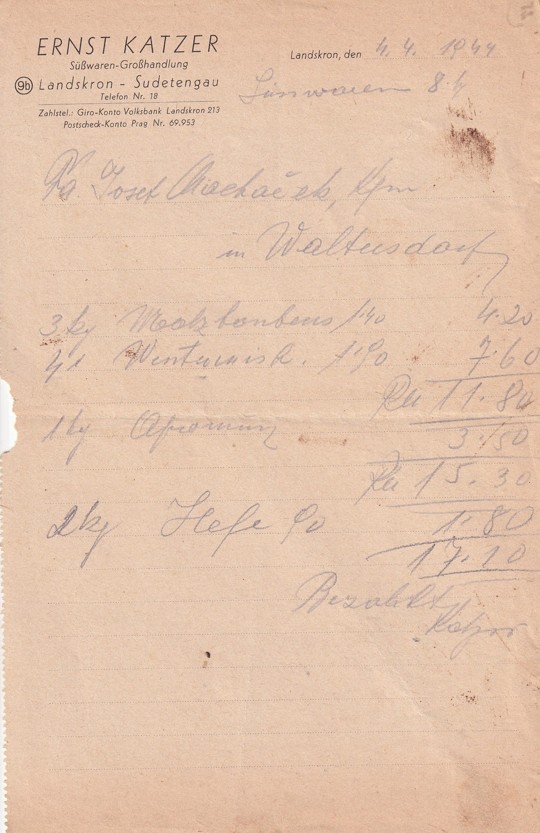 ERNST KATZER
Süßwaren-Großhandlung
9b Landskron - Sudetengau
Telefon Nr. 18
Zahlstel.: Giro-Konto Volksbank Landskron 213
Postscheck-Konto Prag Nr. 69.953
Landskron, den 4. 4. 1944
Fa Josef
in Waltersdorf
3 kg Malzbonbons 1·40 4·20
4 " 1·90 7·60
RM 11·80
1 kg 3·50
RM 15·30
2 kg Hefe 90 1·80
17·10
Bezahlt
Katzer